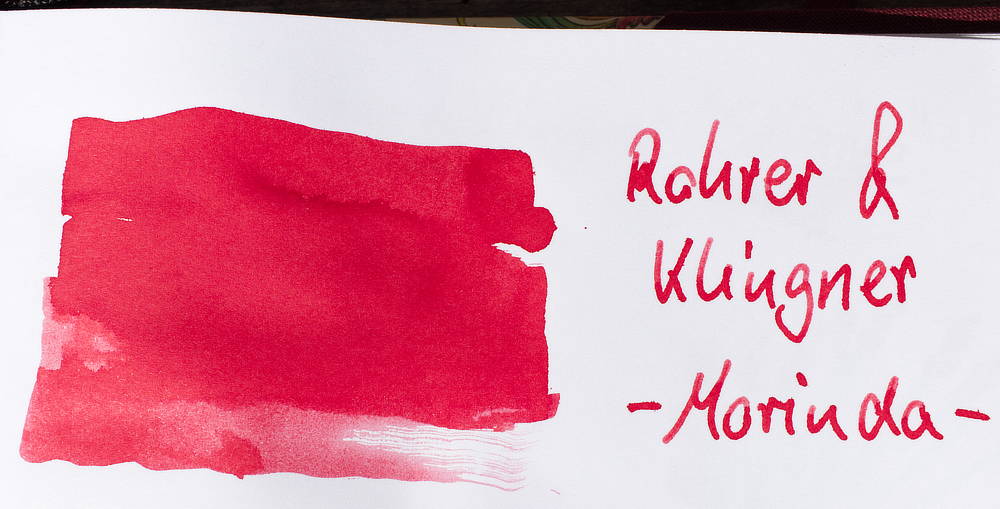 Rohrer &
Klingner
-Morinda-